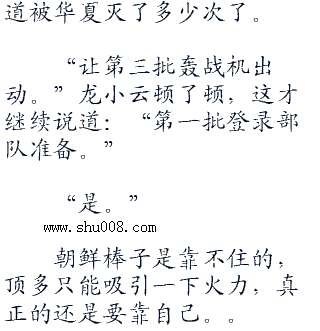 道被华夏灭了多少次了。
“让第三批轰战机出
动。”龙小云顿了顿，这才
继续说道：“第一批登录部
队准备。”
“是。”
www.shu008.com
朝鲜棒子是靠不住的，
顶多只能吸引一下火力，真
正的还是要靠自己。。